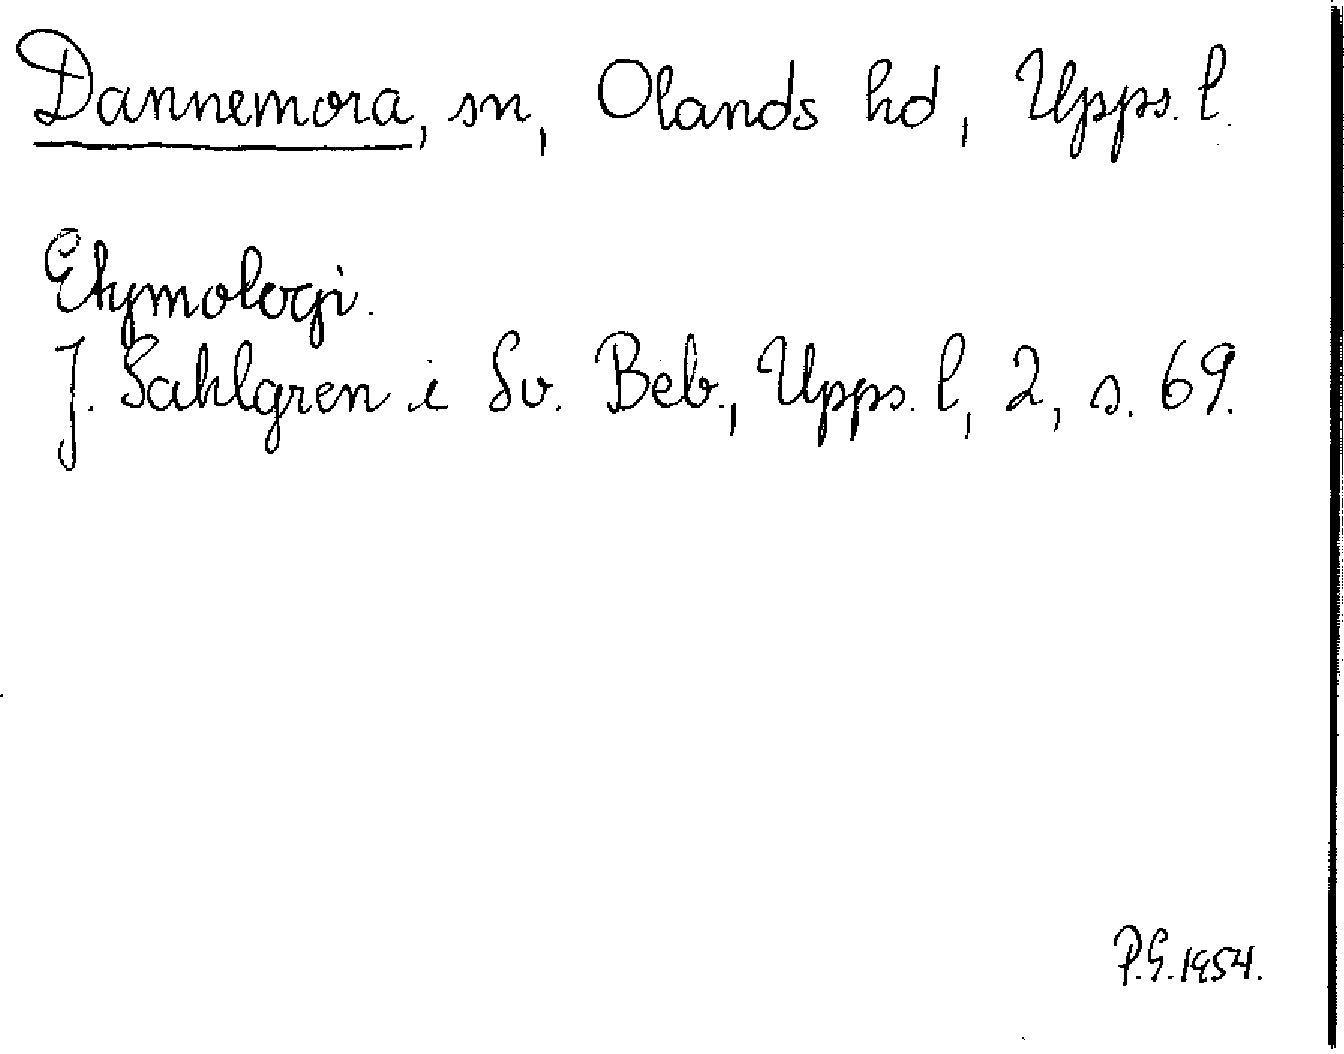 Dannemora, sn, Olands hd, Upps. l.
Etymologi.
J. Sahlgren i Sv. Beb., Upps. l, 2, s. 69.
P.G. 1954.